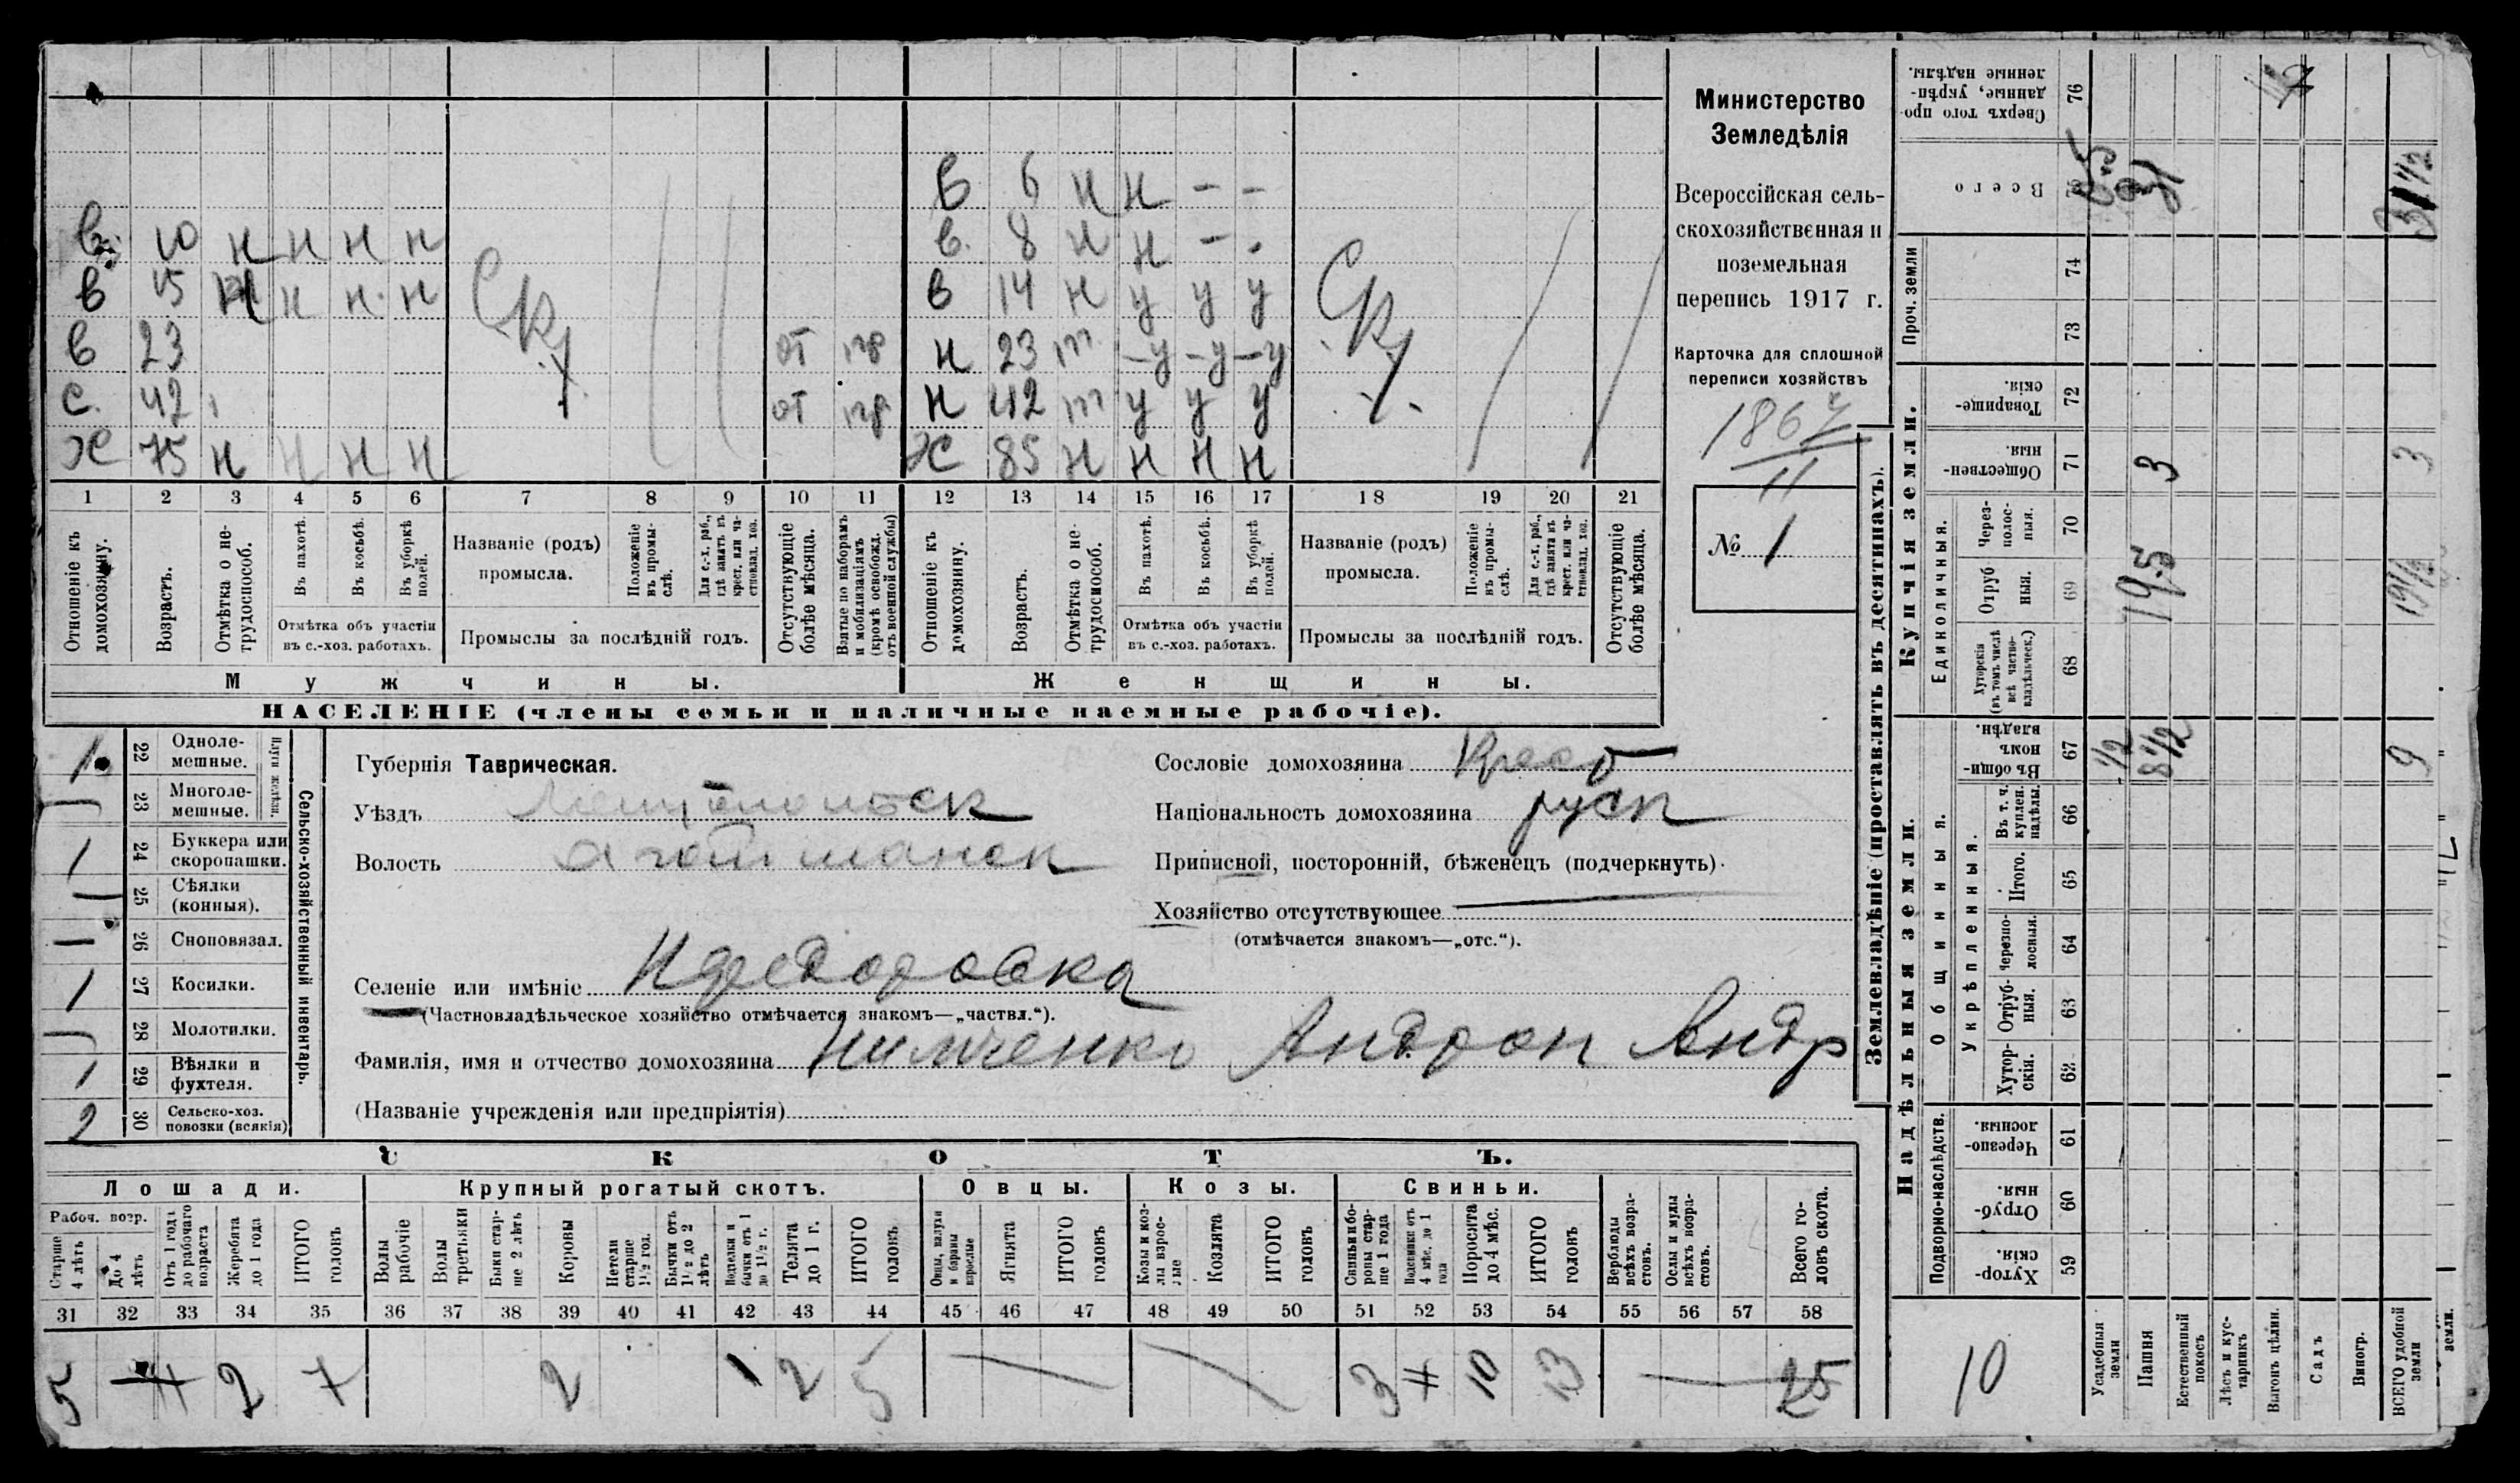 в 6 н н – –
в 10 н н н н в. 8 н н – -
в 15 н н н н в 14 н у у у
Ск Ск
в 23 от пр н 23 т –у –у –у
с. 42 от пр н 42 т у у у
ж 75 н н н н ж 85 н н н н
1 2 3 4 5 6 7 8 9 10 11 12 13 14 15 16 17 18 19 20 21
Отношеніе къ домохозяину.
Возрастъ.
Отмѣтка о не-
трудоспособ.
Въ пахотѣ.
Въ косьбѣ.
Въ уборкѣ
полей.
Отмѣтка объ участіи
въ с.-хоз. работахъ.
Названіе (родъ)
промысла.
Положеніе
въ промы-
слѣ.
Для с.-х. раб.,
гдѣ занятъ въ
крест. или ча-
стновлад. хоз.
Промыслы за послѣдній годъ.
Отсутствующіе
болѣе мѣсяца.
Взятые по наборамъ
и мобилизаціямъ
(кромѣ освобожд.
отъ военной службы)
Отношеніе къ
домохозяину.
Возрастъ.
Отмѣтка о не-
трудоспособ.
Въ пахотѣ.
Въ косьбѣ.
Въ уборкѣ
полей.
Отмѣтка объ участіи
въ с.-хоз. работахъ.
Названіе (родъ)
промысла.
Положеніе
въ промы-
слѣ.
Для с.-х. раб.,
гдѣ занята въ
крест. или ча-
стновлад. хоз.
Промыслы за послѣдній годъ.
Отсутствующіе
болѣе мѣсяца.
Мужчины. Женщины.
НАСЕЛЕНІЕ (члены семьи и наличные наемные рабочіе).
Министерство
Земледѣлія
Всероссійская сель-
скохозяйственная и
поземельная
перепись 1917 г.
Карточка для сплошной
переписи хозяйствъ
1867
11
№ 1
Сельско-хозяйственный инвентарь.
Плуги желѣзн.
1 22 Одноле-
мешные.
23 Многоле-
мешные.
1 24 Буккера или
скоропашки.
— 25 Сѣялки
(конныя).
— 26 Сноповязал.
1 27 Косилки.
— 28 Молотилки.
1 29 Вѣялки и
фухтеля.
2 30 Сельско-хоз.
повозки (всякія)
Губернія Таврическая.
Уѣздъ
Волость
Селеніе или имѣніе
(Частновладѣльческое хозяйство отмѣчается знакомъ—„частвл.“).
Фамилія, имя и отчество домохозяина Нимченко Андрон Андр
(Названіе учрежденія или предпріятія)
Сословіе домохозяина Крест
Національность домохозяина руск
Приписной, посторонній, бѣженецъ (подчеркнуть).
Хозяйство отсутствующее
(отмѣчается знакомъ—„отс.“).
СКОТЪ.
Лошади. Крупный рогатый скотъ. Овцы. Козы. Свиньи.
Рабоч. возр.
Старше
4 лѣтъ
До 4
лѣтъ
Отъ 1 года
до рабочаго
возраста
Жеребята
до 1 года
ИТОГО
головъ
Волы
рабочіе
Волы
третьяки
Быки стар-
ше 2 лѣтъ
Коровы
Нетели
старше
1½ год.
Бычки отъ
1½ до 2
лѣтъ
Подтелки и
бычки отъ 1
до 1½ г.
Телята
до 1 г.
ИТОГО
головъ
Овцы, валухи
и бараны
взрослые
Ягнята
ИТОГО
головъ
Козы и коз-
лы взрос-
лые
Козлята
ИТОГО
головъ
Свиньи и бо-
ровы стар-
ше 1 года
Подсвинки отъ
4 мѣс. до 1
года
Поросята
до 4 мѣс.
ИТОГО
головъ
Верблюды
всѣхъ возра-
стовъ.
Ослы и мулы
всѣхъ возра-
стовъ.
Всего го-
ловъ скота.
31 32 33 34 35 36 37 38 39 40 41 42 43 44 45 46 47 48 49 50 51 52 53 54 55 56 57 58
5 2 7 2 1 2 5 3 10 13 25
Землевладѣніе (проставлять въ десятинахъ).
Надѣльныя земли. Купчія земли.
Подворно-наслѣдств.
Общинныя.
Укрѣпленныя.
Единоличныя.
Проч. земли
Сверхъ того про-
данные, укрѣп-
ленные надѣлы. 76
Всего 75
74
73
Товарище-
скія. 72
Обществен-
ныя. 71
Через-
полос-
ныя. 70
Отруб
ныя. 69
Хуторскія
(въ томъ числѣ
всѣ частно-
владѣльческ.) 68
Въ общин-
номъ
владѣн. 67
Въ т. ч.
куплен.
надѣлы. 66
Итого. 65
Черезпо-
лосныя. 64
Отруб-
ныя. 63
Хутор-
скія. 62
Черезпо-
лосныя. 61
Отруб-
ныя. 60
Хутор-
скія. 59
1/2 8 1/2 9
19,5 19 1/2
3 3
31 1/2
10
Усадебныя
земли
Пашня
Естественный
покосъ
Лѣсъ и кус-
тарникъ
Выгонъ цѣлин.
Садъ
Виногр.
ВСЕГО удобной
земли
земли.